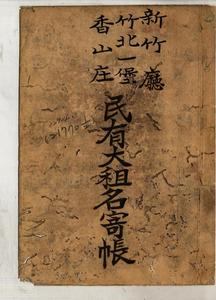 新竹廳
竹北一堡
香山庄
民有大租名寄帳